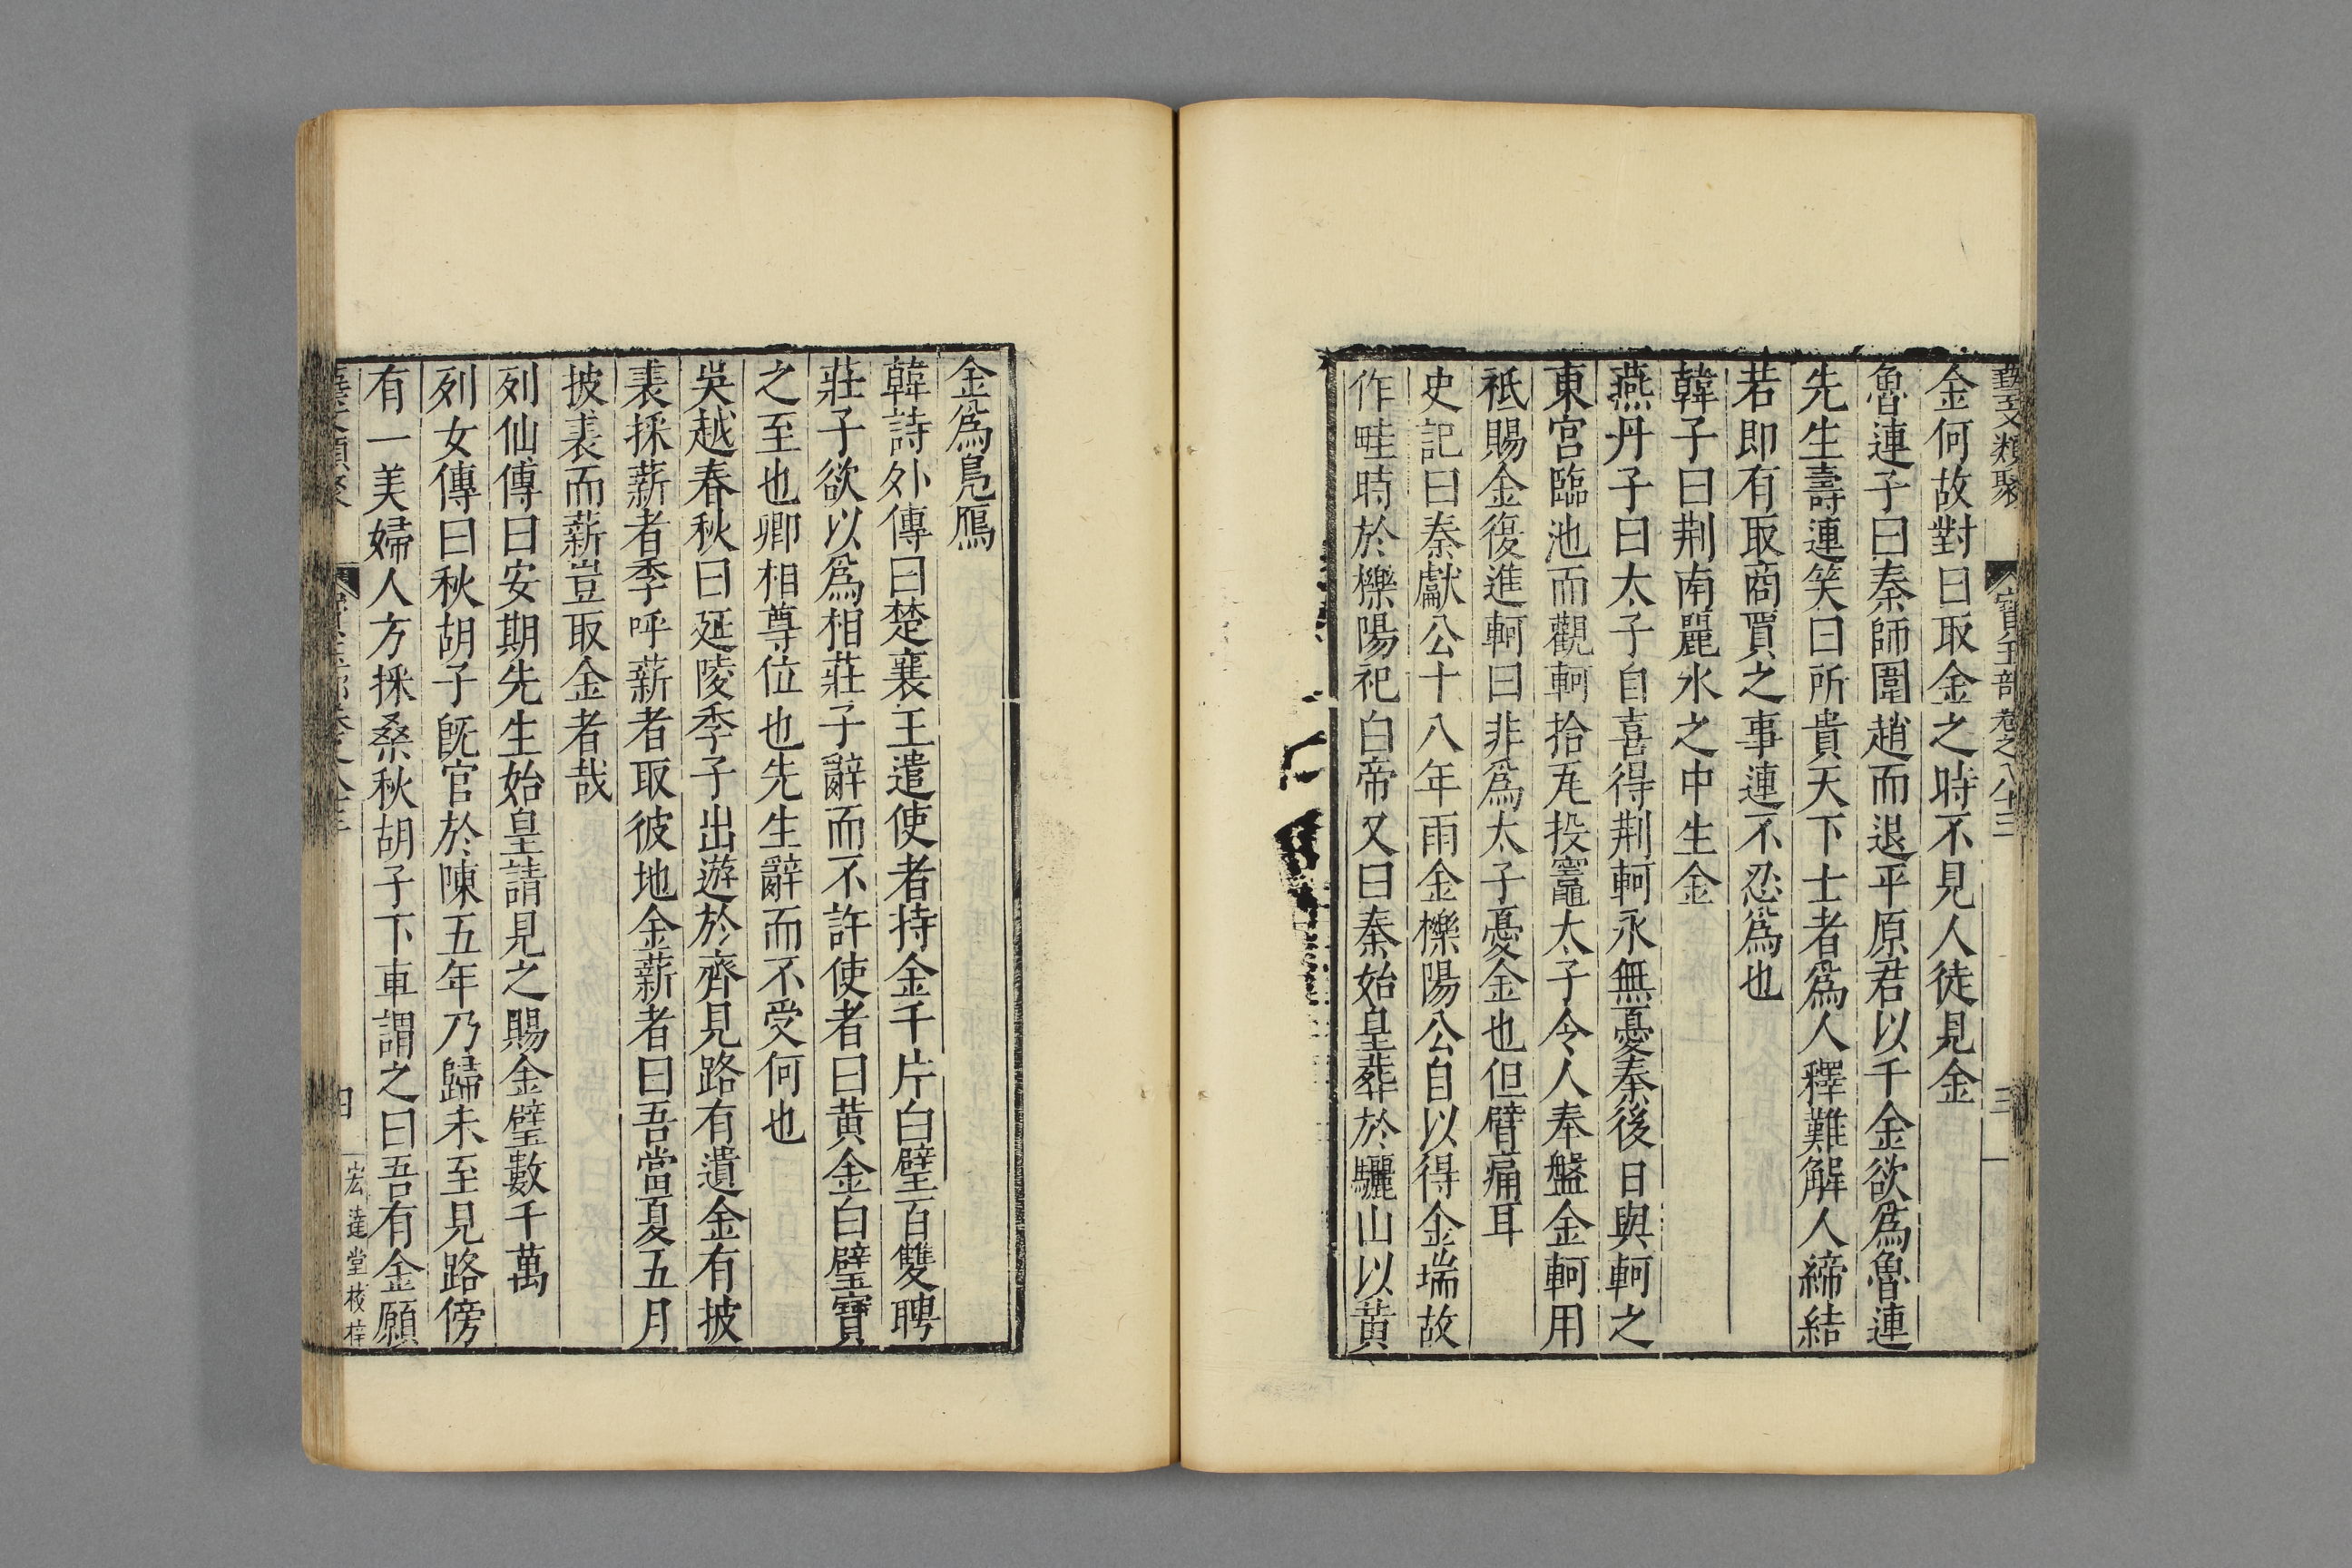 藝文類聚 寶玉部卷之八十三 三
金何故對曰取金之時不見人徒見金
魯連子曰秦師圍趙而退平原君以千金欲爲魯連
先生壽連笑曰所貴天下士者爲人釋難解人締結
若即有取商賈之事連不忍爲也
韓子曰荆南麗水之中生金
燕丹子曰太子自喜得荆軻永無憂秦後日與軻之
東宮臨池而觀軻拾瓦投䵷太子令人奉盤金軻用
祗賜金復進軻曰非爲太子憂金也但臂痛耳
史記曰秦獻公十八年雨金櫟陽公自以得金瑞故
作畦時於櫟陽祀白帝又曰秦始皇葬於驪山以黄
金爲鳬鴈
韓詩外傳曰楚襄王遣使者持金千片白璧百雙聘
莊子欲以爲相莊子辭而不許使者曰黄金白璧寳
之至也卿相尊位也先生辭而不受何也
吳越春秋曰延陵季子出遊於齊見路有遺金有披
裘採薪者季呼薪者取彼地金薪者曰吾當夏五月
披裘而薪豈取金者哉
列仙傳曰安期先生始皇請見之賜金璧數千萬
列女傳曰秋胡子旣官於陳五年乃歸未至見路傍
有一美婦人方採桑秋胡子下車謂之曰吾有金願
四 宏達堂校梓